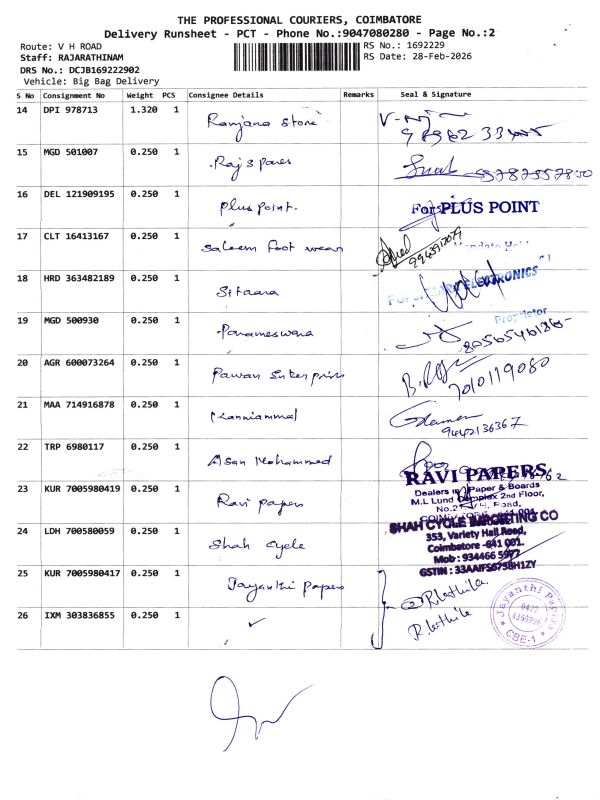 THE PROFESSIONAL COURIERS, COIMBATORE
Delivery Runsheet - PCT - Phone No.:9047080280 - Page No.:2
Route: V H ROAD
RS No.: 1692229
Staff: RAJARATHINAM
RS Date: 28-Feb-2026
DRS No.: DCJB169222902
Vehicle: Big Bag Delivery
S No Consignment No Weight PCS Consignee Details Remarks Seal & Signature
14 DPI 978713 1.320 1 Ranjana Store
15 MGD 501007 0.250 1 Raj Spares
16 DEL 121909195 0.250 1 Plus Point. For PLUS POINT
17 CLT 16413167 0.250 1 Saleem foot wear 9943912079
18 HRD 363482189 0.250 1 Sitaara ELECTRONICS
Proprietor
19 MGD 500930 0.250 1 Parameswara
20 AGR 600073264 0.250 1 Pawan Enterprises 7010119080
21 MAA 714916878 0.250 1 Kanniammal 9442136367
22 TRP 6980117 0.250 1 Asan Mohammed
RAVI PAPERS
23 KUR 7005980419 0.250 1 Ravi papers
Dealers in Paper & Boards
M.L Lund Complex 2nd Floor,
24 LDH 700580059 0.250 1 Shah Cycle
SHAH CYCLE IMPORTING CO
353, Variety Hall Road,
Coimbatore - 641 001.
Mob : 934466 5977
GSTIN : 33AAIFS6758H1ZY
25 KUR 7005980417 0.250 1 Jayanthi papers R. Lathika
26 IXM 303836855 0.250 1 ✓ R. Lathika
Jayanthi Papers
0422
CBE-1